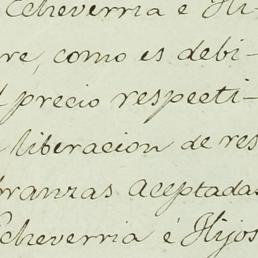 Echeverria é Hi-
re, como es debi-
l precio respecti-
liberacion de res
branzas aceptadas
Echeverria é Hijos